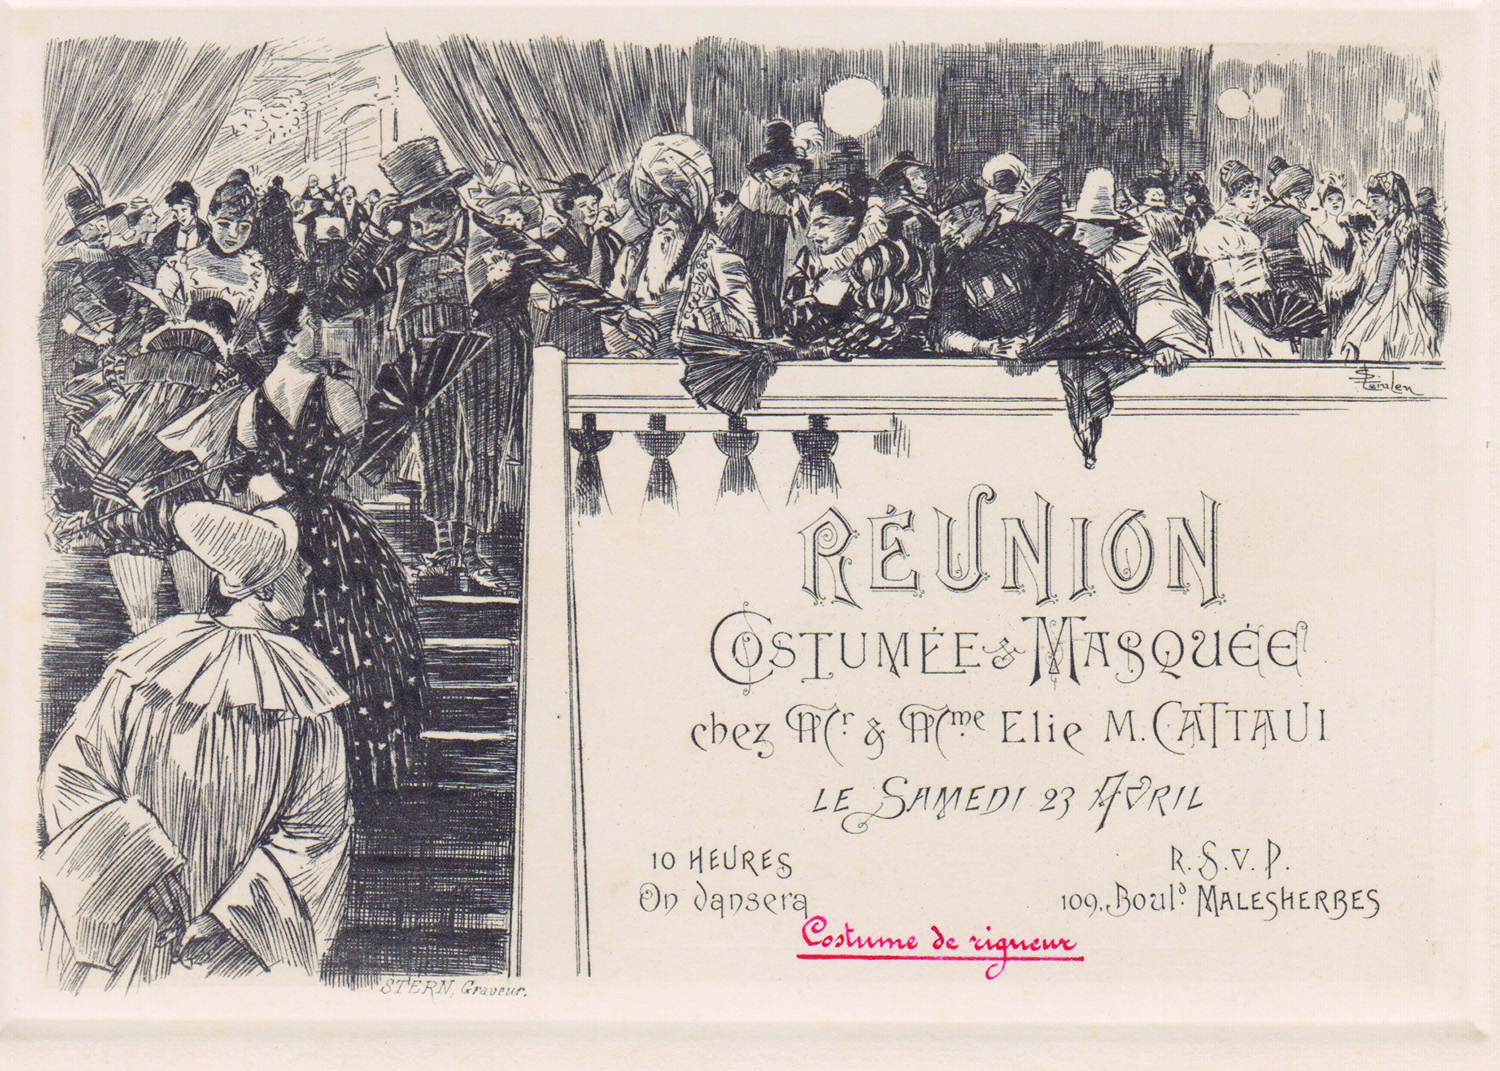 RÉUNION
COSTUMÉE & MASQUÉE
chez Mr. & Mme Elie M. CATTAUI
LE SAMEDI 23 AVRIL
10 HEURES
On dansera
R. S. V. P.
109, Boul.d MALESHERBES
Costume de rigueur
STERN, Graveur.